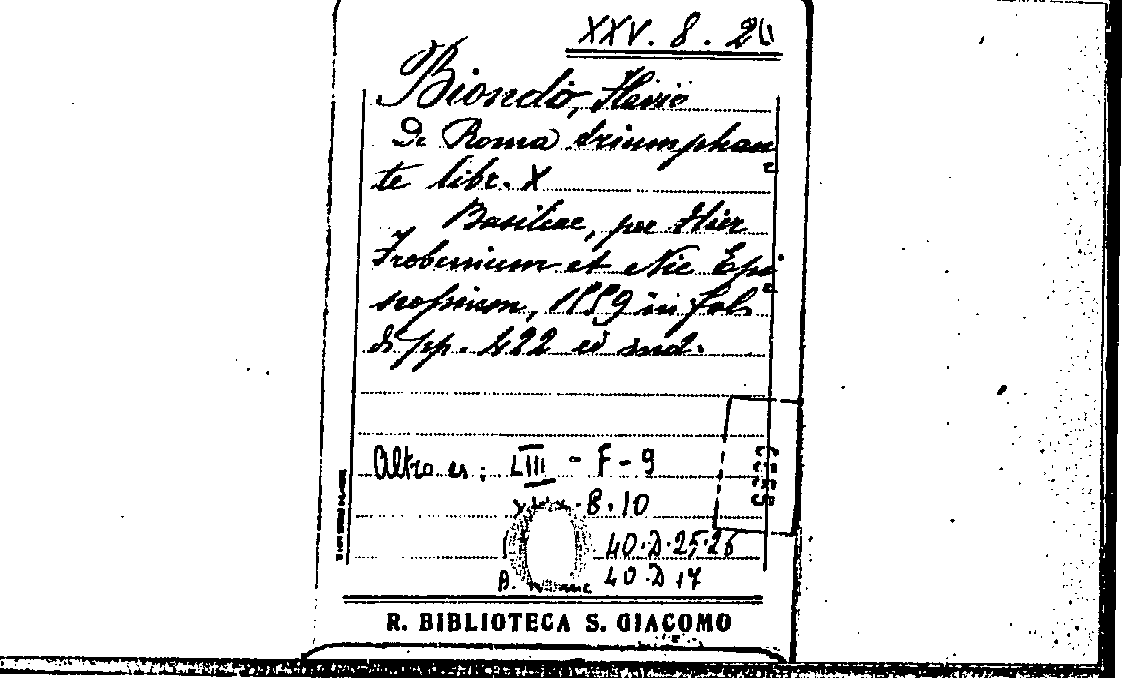 XXV. 8. 20
Biondo, Flavio
De Roma triumphan=
te libr. X
Basileae, per Hier
Frobenium et Nic Epi=
scopium, 1559 in fol.
di pp. 422 ed ind.
Altro es: LIII - F - 9
8.10
40.D.25.26
40.D 17
R. BIBLIOTECA S. GIACOMO